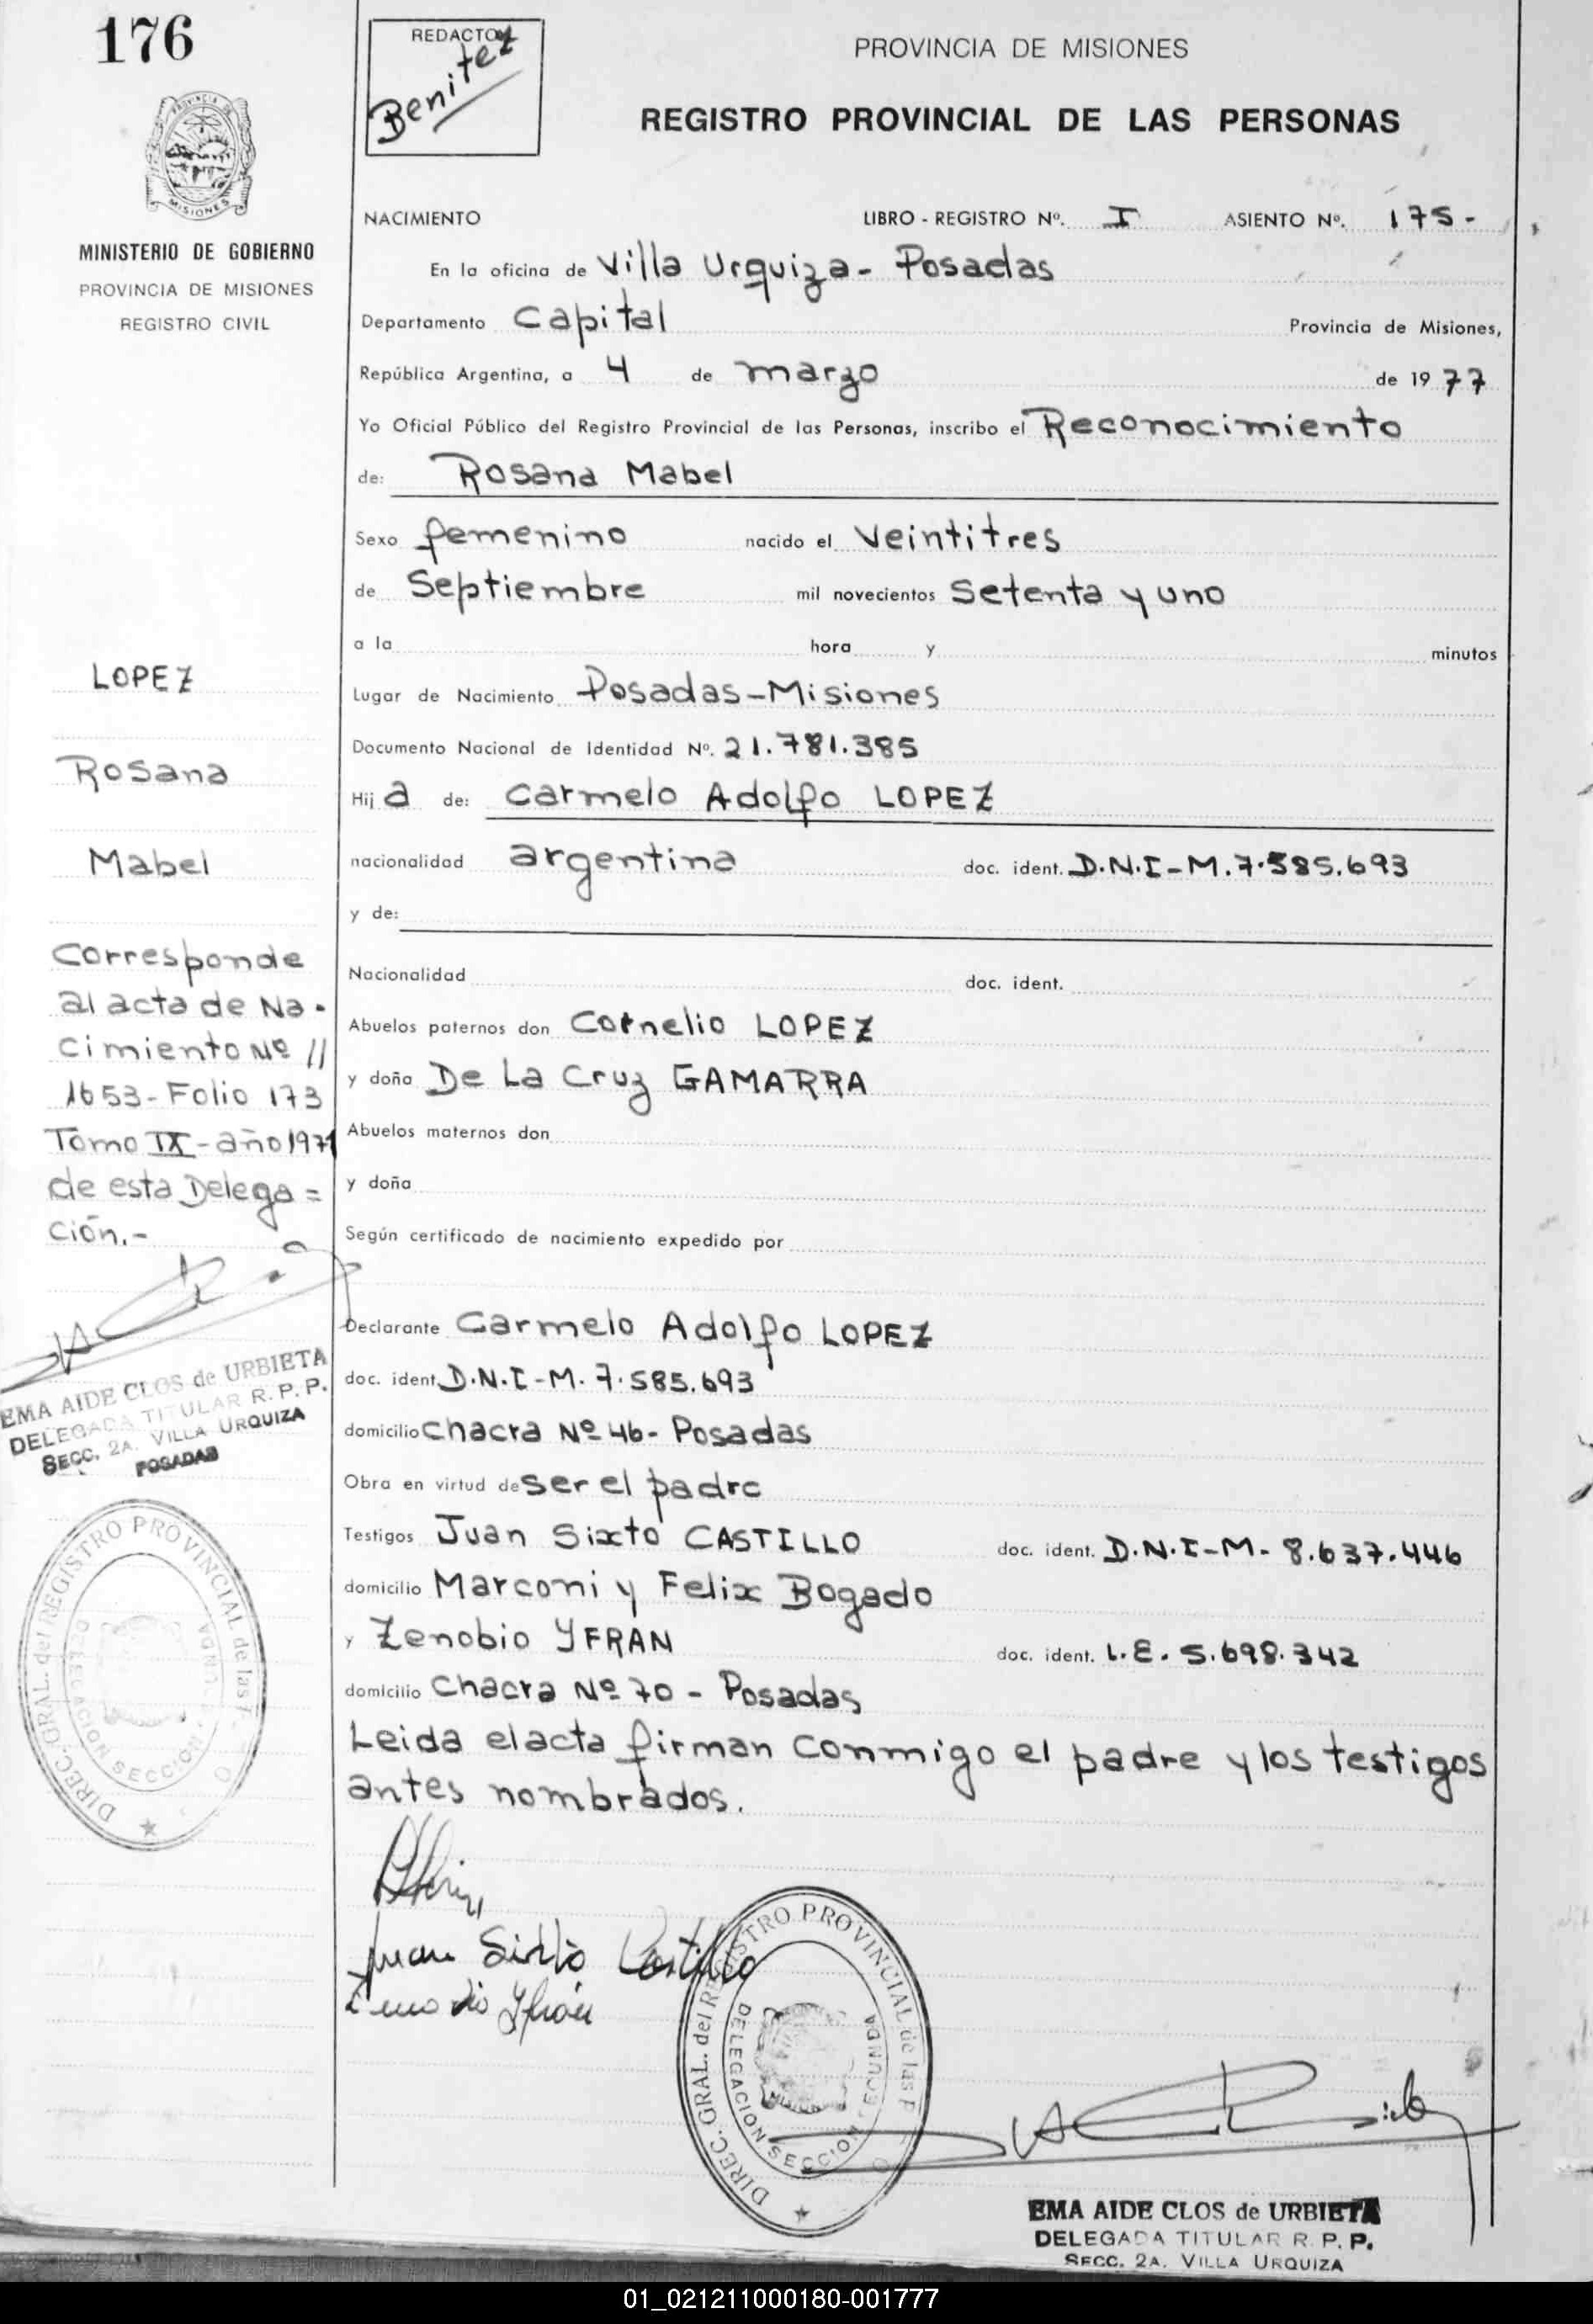 176
REDACTOR
Benitez
PROVINCIA DE MISIONES
REGISTRO PROVINCIAL DE LAS PERSONAS
MISIONES
MINISTERIO DE GOBIERNO
PROVINCIA DE MISIONES
REGISTRO CIVIL
NACIMIENTO LIBRO - REGISTRO Nº. I ASIENTO Nº. 175-
En la oficina de Villa Urquiza - Posadas
Departamento Capital Provincia de Misiones,
República Argentina, a 4 de marzo de 1977
Yo Oficial Público del Registro Provincial de las Personas, inscribo el Reconocimiento
de: Rosana Mabel
Sexo femenino nacido el Veintitres
de Septiembre mil novecientos Setenta y uno
a la hora y minutos
Lugar de Nacimiento Posadas-Misiones
Documento Nacional de Identidad Nº. 21.781.385
Hija de: Carmelo Adolfo LOPEZ
nacionalidad argentina doc. ident. D.N.I-M.7.585.693
y de:
Nacionalidad doc. ident.
Abuelos paternos don Cornelio LOPEZ
y doña De La Cruz GAMARRA
Abuelos maternos don
y doña
Según certificado de nacimiento expedido por
Declarante Carmelo Adolfo LOPEZ
doc. ident. D.N.I-M. 7.585.693
domicilio Chacra Nº 46- Posadas
Obra en virtud de ser el padre
Testigos Juan Sixto CASTILLO doc. ident. D.N.I-M- 8.637.446
domicilio Marconi y Felix Bogado
y Zenobio YFRAN doc. ident. L.E. 5.698.342
domicilio Chacra Nº 70 - Posadas
Leida el acta firman conmigo el padre y los testigos
antes nombrados.
LOPEZ
Rosana
Mabel
Corresponde
al acta de Na-
cimiento Nº //
1653- Folio 173
Tomo IX - año 1971
de esta Delega=
ción.-
EMA AIDE CLOS de URBIETA
DELEGADA TITULAR R. P. P.
SECC. 2A. VILLA URQUIZA
POSADAS
DIREC. GRAL. del REGISTRO PROVINCIAL de las
DELEGACION SECCION
Juan Sixto Castillo
Zenobio Yfrán
DIREC. GRAL. del REGISTRO PROVINCIAL de las P
DELEGACION SECCION SEGUNDA
EMA AIDE CLOS de URBIETA
DELEGADA TITULAR R. P. P.
SECC. 2A. VILLA URQUIZA
01_021211000180-001777